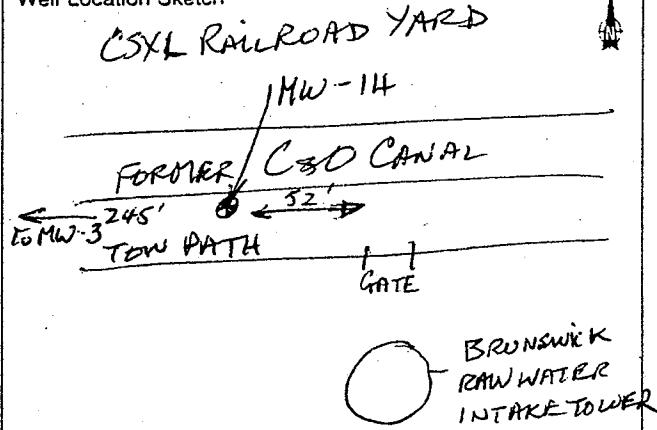 Well Location Sketch
CSXL RAILROAD YARD
N
MW-14
FORMER C&O CANAL
245'
52'
TO MW-3
TOW PATH
GATE
BRUNSWICK
RAW WATER
INTAKE TOWER